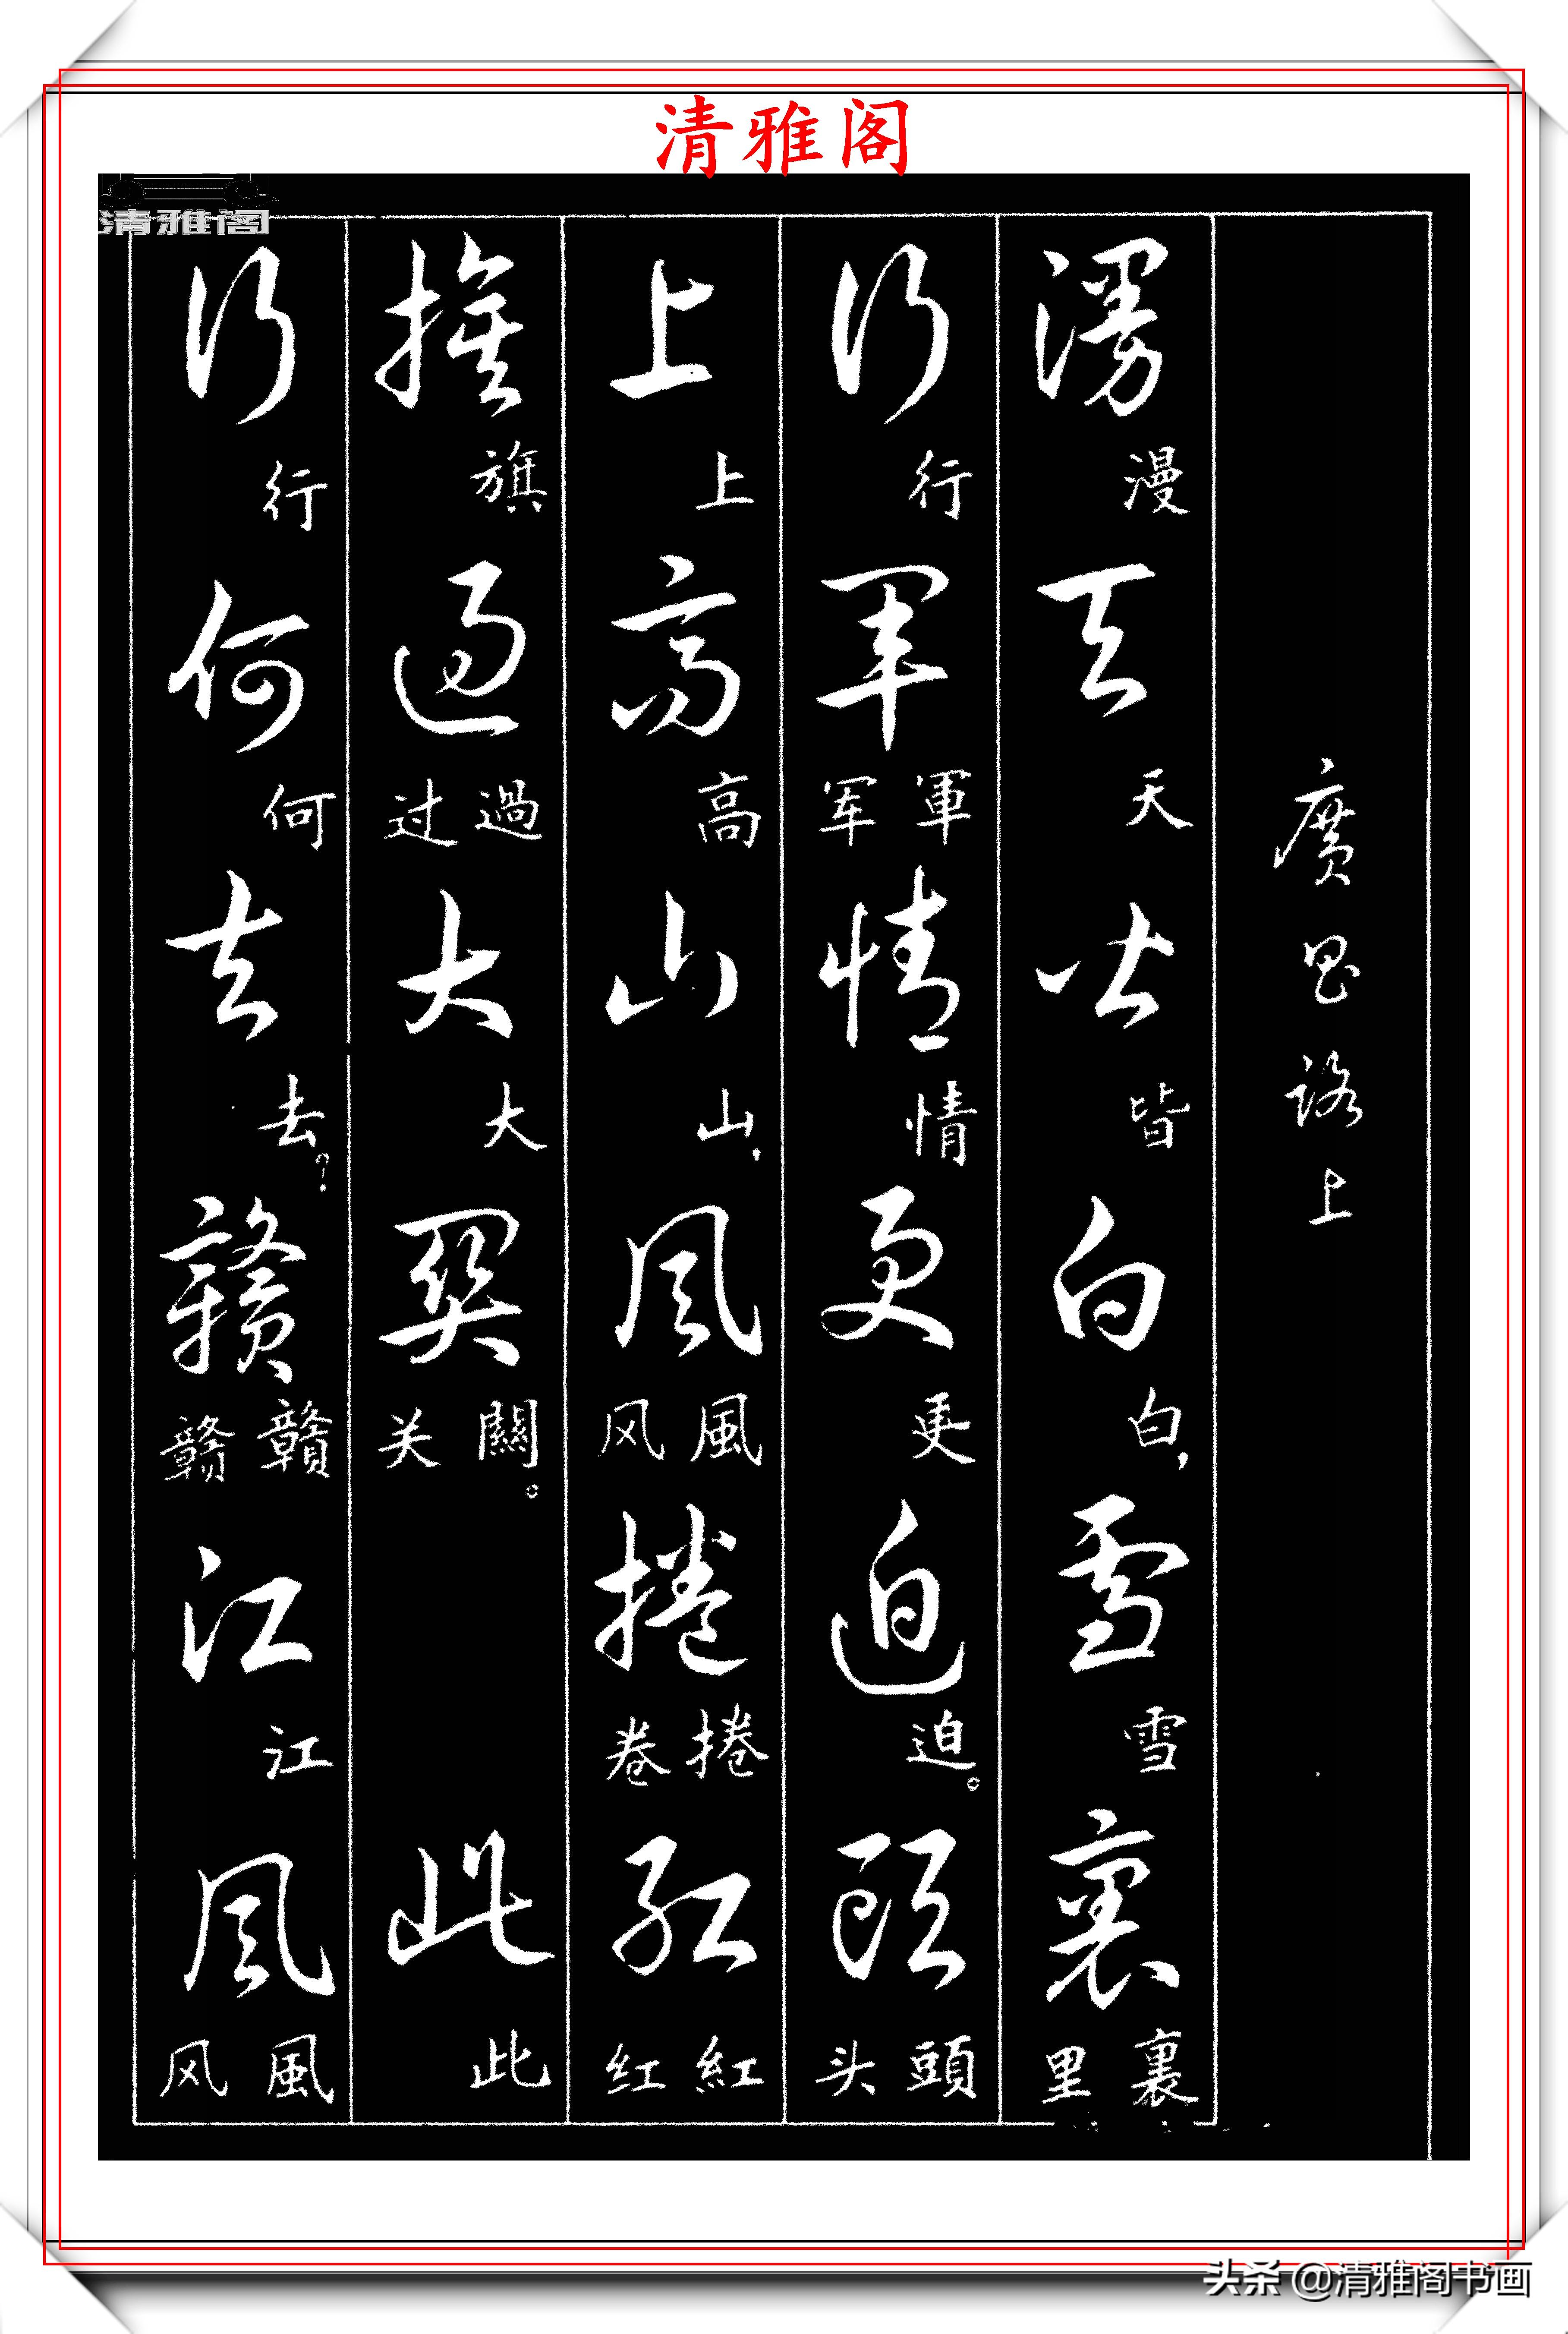 清雅阁
清雅阁
廣昌路上
漫漫天天皆皆白白，雪雪裏裏里
行行軍軍军情情更更迫迫。頭頭头
上上高高山山，風風风捲捲卷紅紅红
旗旗過過过大大關關。关此此
行行何何去去？贛贛赣江江風風风
头条 @清雅阁书画